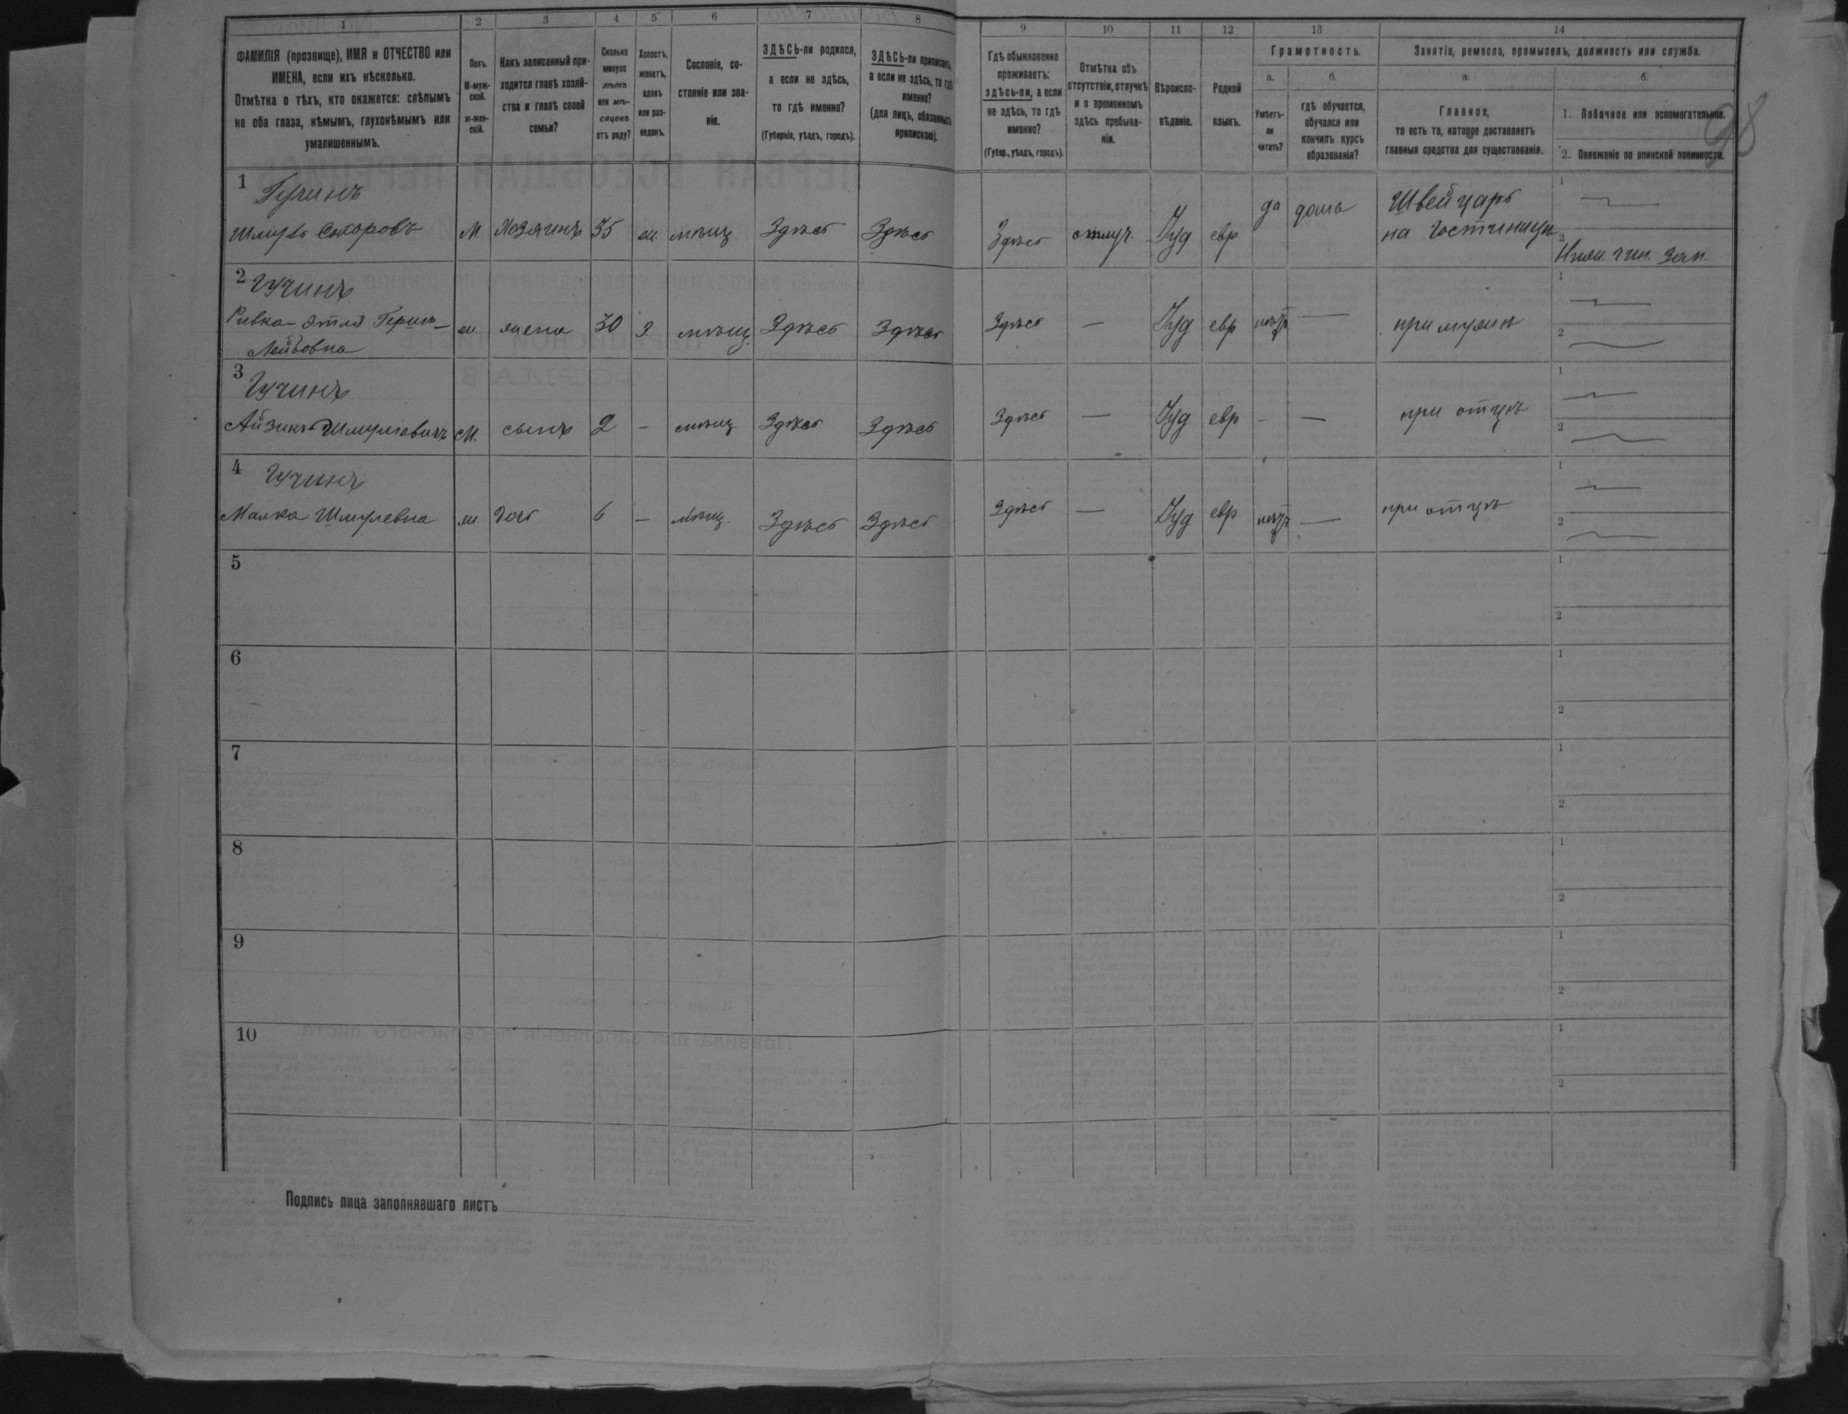 1 2 3 4 5 6 7 8 9 10 11 12 13 14
ФАМИЛІЯ (прозвище), ИМЯ и ОТЧЕСТВО или
ИМЕНА, если ихъ нѣсколько.
Отмѣтка о тѣхъ, кто окажется: слѣпымъ
на оба глаза, нѣмымъ, глухонѣмымъ или
умалишеннымъ.
Полъ.
М-муж-
ской.
ж-жен-
скій.
Какъ записанный при-
ходится главѣ хозяй-
ства и главѣ своей
семьи?
Сколько
минуло
лѣтъ
или мѣ-
сяцевъ
отъ роду?
Холостъ,
женатъ,
вдовъ
или раз-
веденъ.
Сословіе, со-
стояніе или зва-
ніе.
ЗДѢСЬ-ли родился,
а если не здѣсь,
то гдѣ именно?
(Губернія, уѣздъ, городъ).
ЗДѢСЬ-ли приписанъ,
а если не здѣсь, то гдѣ
именно?
(для лицъ, обязанныхъ
припискою).
Гдѣ обыкновенно
проживаетъ:
здѣсь-ли, а если
не здѣсь, то гдѣ
именно?
(Губер., уѣздъ, городъ).
Отмѣтка объ
отсутствіи, отлучкѣ
и о временномъ
здѣсь пребыва-
ніи.
Вѣроиспо-
вѣданіе.
Родной
языкъ.
Грамотность.
а. б.
Умѣетъ-
ли
читать?
гдѣ обучается,
обучался или
кончилъ курсъ
образованія?
Занятіе, ремесло, промыселъ, должность или служба.
а. б.
Главное,
то есть то, которое доставляетъ
главныя средства для существованія.
1. Побочное или вспомогательное.
2. Положеніе по воинской повинности.
98
1 Гучинъ
М Хозяинъ 35 ж. мѣщ. Здѣсь Здѣсь Здѣсь отлуч. Іуд евр да дома Швейцаръ
на гостиницѣ
1 —
2 Нижн. чин. зап.
2 Гучинъ
Ривка-Этля Герш-
Лейбовна
ж. жена 30 з. мѣщ Здѣсь Здѣсь Здѣсь — Іуд евр нѣтъ — при мужѣ
1 —
2 —
3 Гучинъ
Айзикъ Шмулевичъ М. сынъ 2 – мѣщ Здѣсь Здѣсь Здѣсь — Іуд евр – — при отцѣ
1 —
2 —
4 Гучинъ
Малка Шмулевна ж. дочь 6 – мѣщ. Здѣсь Здѣсь Здѣсь — Іуд евр. нѣтъ — при отцѣ
1 —
2 —
5 1
2
6 1
2
7 1
2
8 1
2
9 1
2
10 1
2
Подпись лица заполнявшаго листъ